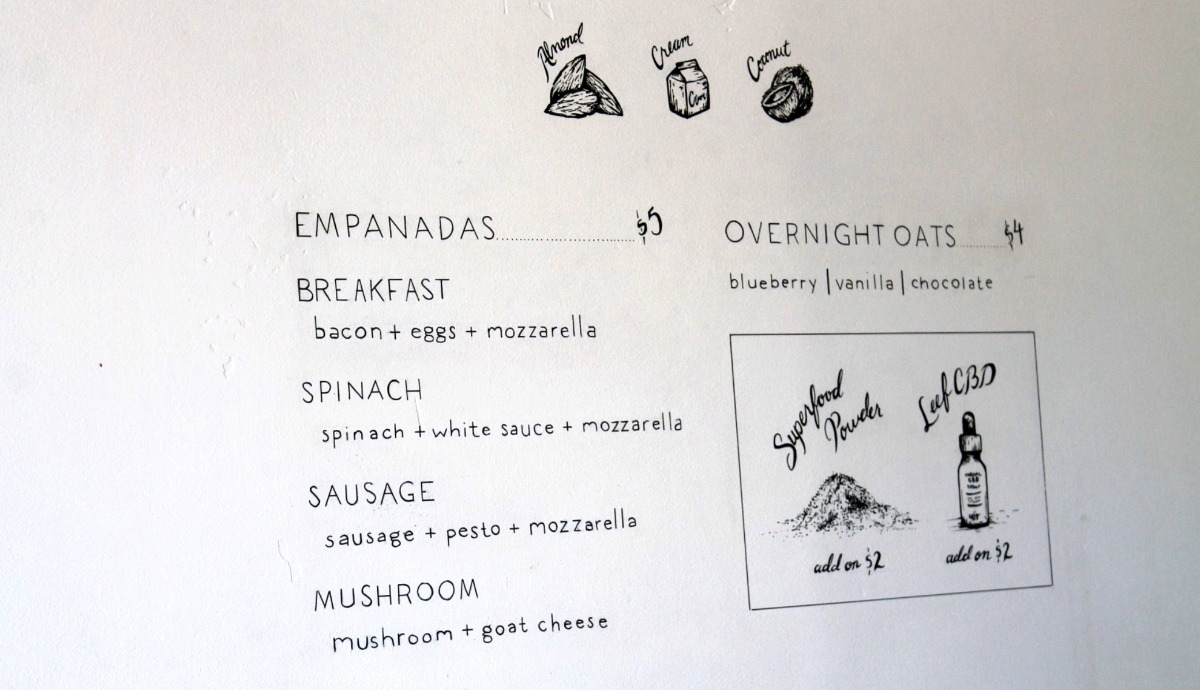 Almond
Cream
Coconut
EMPANADAS....................$5
BREAKFAST
bacon + eggs + mozzarella
SPINACH
spinach + white sauce + mozzarella
SAUSAGE
sausage + pesto + mozzarella
MUSHROOM
mushroom + goat cheese
OVERNIGHT OATS.......$4
blueberry | vanilla | chocolate
Superfood
Powder
add on $2
Leef CBD
CBD
add on $2